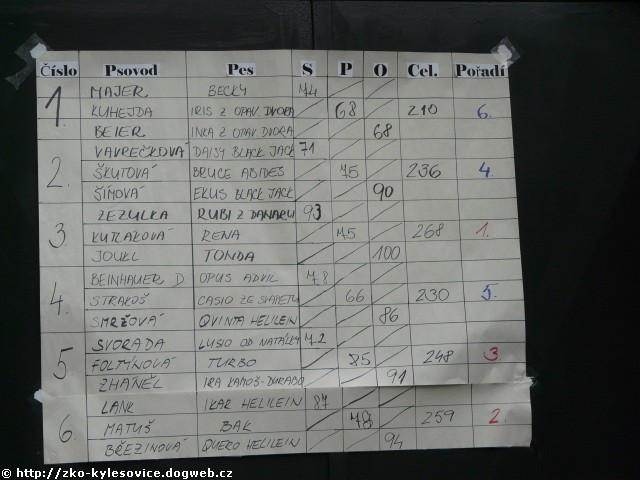 Číslo Psovod Pes S P O Cel. Pořadí
1. MAJER BECKY 74
KUHEJDA IRIS Z OPAV. DVORA 68 210 6.
BEIER INKA Z OPAV. DVORA 68
2. VAVREČKOVÁ DAISY BLACK JACK 71
ŠKUTOVÁ BRUCE ABIDES 75 236 4.
ŠÍMOVÁ EKUS BLACK JACK 90
3. ZEZULKA RUBI Z DANARU 93
KUTLAKOVÁ RENA 75 268 1.
JOUKL TONDA 100
4. BEINHAUER D OPUS ADVIL 78
STRAKOŠ CASIO ZE 66 230 5.
SMRŽOVÁ QVINTA HELILEIN 86
5. SVORADA LUSIO OD NATÁLKY 72
FOLTÝNOVÁ TURBO 85 248 3.
ZHÁNĚL IRA 91
6. LANK IKAR HELILEIN 87
MATUŠ BAK 78 259 2.
BŘEZINOVÁ QUERO HELILEIN 94
© http://zko-kylesovice.dogweb.cz